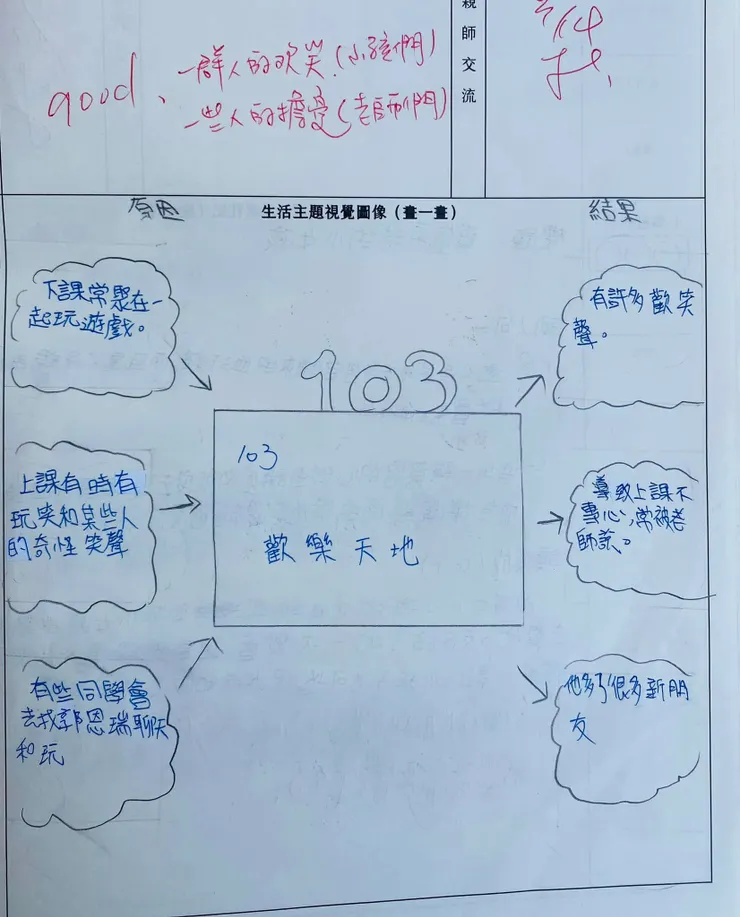 good、一群人的欢笑(小孩們)
一些人的擔憂(老師們)
親師交流
原因
生活主題視覺圖像（畫一畫）
結果
下課常聚在一
起玩遊戲。
有許多歡笑
聲。
103
103
歡樂天地
上課有時有
玩笑和某些人
的奇怪笑聲
導致上課不
專心，常被老
師說。
有些同學會
去找郭恩瑞聊天
和玩
他多了很多新朋
友